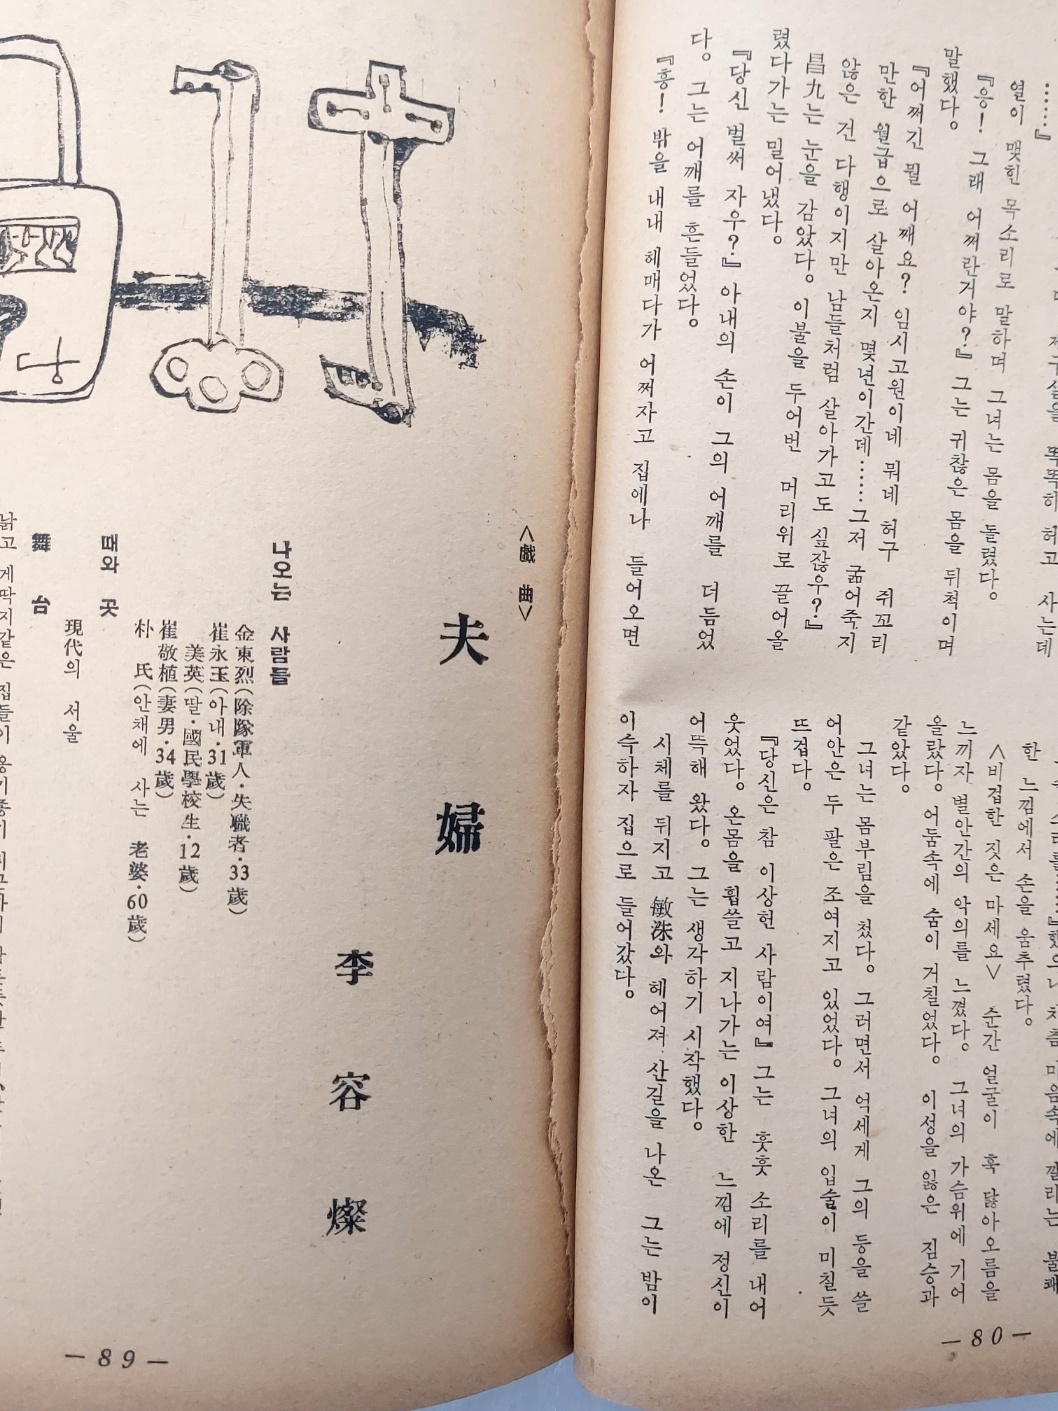 ……』
열이 맺힌 목소리로 말하며 그녀는 몸을 돌렸다。
『응! 그래 어쩌란거야?』 그는 귀찮은 몸을 뒤척이며
말했다。
『어쩌긴 뭘 어째요? 임시고원이네 뭐네 허구 쥐꼬리
만한 월급으로 살아온지 몇년이간데……그저 굶어죽지
않은 건 다행이지만 남들처럼 살아가고도 싶잖우?』
昌九는 눈을 감았다。 이불을 두어번 머리위로 끌어올
렸다가는 밀어냈다。
『당신 벌써 자우?』 아내의 손이 그의 어깨를 더듬었
다。 그는 어깨를 흔들었다。
『흥! 밖을 내내 헤매다가 어쩌자고 집에나 들어오면
한 느낌에서 손을 움추렸다。
<비겁한 짓은 마세요> 순간 얼굴이 훅 닳아오름을
느끼자 별안간의 악의를 느꼈다。 그녀의 가슴위에 기어
올랐다。 어둠속에 숨이 거칠었다。 이성을 잃은 짐승과
같았다。
그녀는 몸부림을 쳤다。 그러면서 억세게 그의 등을 쓸
어안은 두 팔은 조여지고 있었다。 그녀의 입술이 미칠듯
뜨겁다。
『당신은 참 이상헌 사람이여』 그는 훗훗 소리를 내어
웃었다。 온몸을 휩쓸고 지나가는 이상한 느낌에 정신이
어뜩해 왔다。 그는 생각하기 시작했다。
시체를 뒤지고 敏洙와 헤어져 산길을 나온 그는 밤이
이슥하자 집으로 들어갔다。
—80—
<戱曲>
夫婦
李容燦
나오는 사람들
金東烈(除隊軍人·失職者·33歲)
崔永玉(아내·31歲)
美英(딸·國民學校生·12歲)
崔敬植(妻男·34歲)
朴 氏(안채에 사는 老婆·60歲)
때와 곳
現代의 서울
舞台
낡고 게딱지같은 집들이
—89—